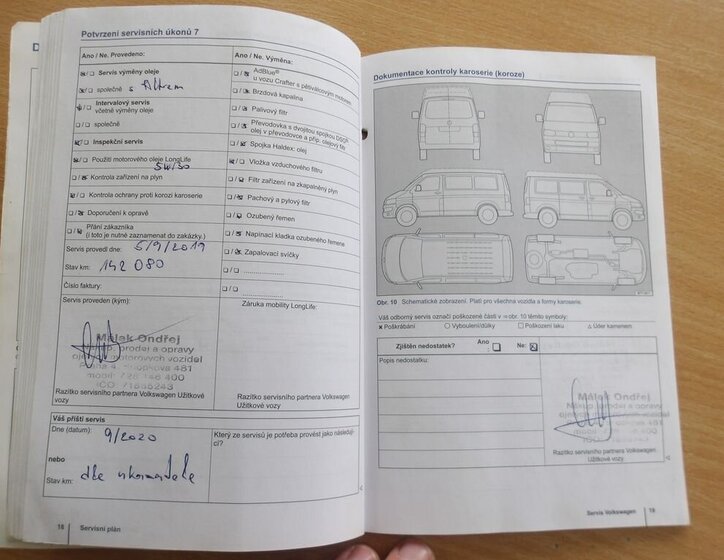 Potvrzení servisních úkonů 7
Ano / Ne. Provedeno:
Servis výměny oleje
společně s filtrem
Intervalový servis
včetně výměny oleje
společně
Inspekční servis
Použití motorového oleje LongLife
5W/30
Kontrola zařízení na plyn
Kontrola ochrany proti korozi karoserie
Doporučení k opravě
Přání zákazníka
(i toto je nutné zaznamenat do zakázky.)
Servis provedl dne: 5/9/2019
Stav km: 142 080
Číslo faktury:
Servis proveden (kým):
Malak Ondřej
Razítko servisního partnera Volkswagen Užitkové
vozy
Ano / Ne. Výměna:
AdBlue®
u vozu Crafter s pětiválcovým motorem
Brzdová kapalina
Palivový filtr
Převodovka s dvojitou spojkou DSG®
olej v převodovce a příp. olejový filtr
Spojka Haldex: olej
Vložka vzduchového filtru
Filtr zařízení na zkapalněný plyn
Pachový a pylový filtr
Ozubený řemen
Napínací kladka ozubeného řemene
Zapalovací svíčky
Záruka mobility LongLife:
Razítko servisního partnera Volkswagen
Užitkové vozy
Váš příští servis
Dne (datum): 9/2020
nebo
Stav km: dle ukazatele
Který ze servisů je potřeba provést jako následují-
cí?
18 Servisní plán
Dokumentace kontroly karoserie (koroze)
Obr. 10 Schematické zobrazení. Platí pro všechna vozidla a formy karoserie.
Váš odborný servis označí poškozené části v ⇒ obr. 10 těmito symboly:
× Poškrábání ○ Vyboulení/důlky □ Poškození laku △ Úder kamenem
Zjištěn nedostatek? Ano Ne:
Popis nedostatku:
Malak Ondřej
Razítko servisního partnera Volkswagen
Užitkové vozy
Servis Volkswagen 19